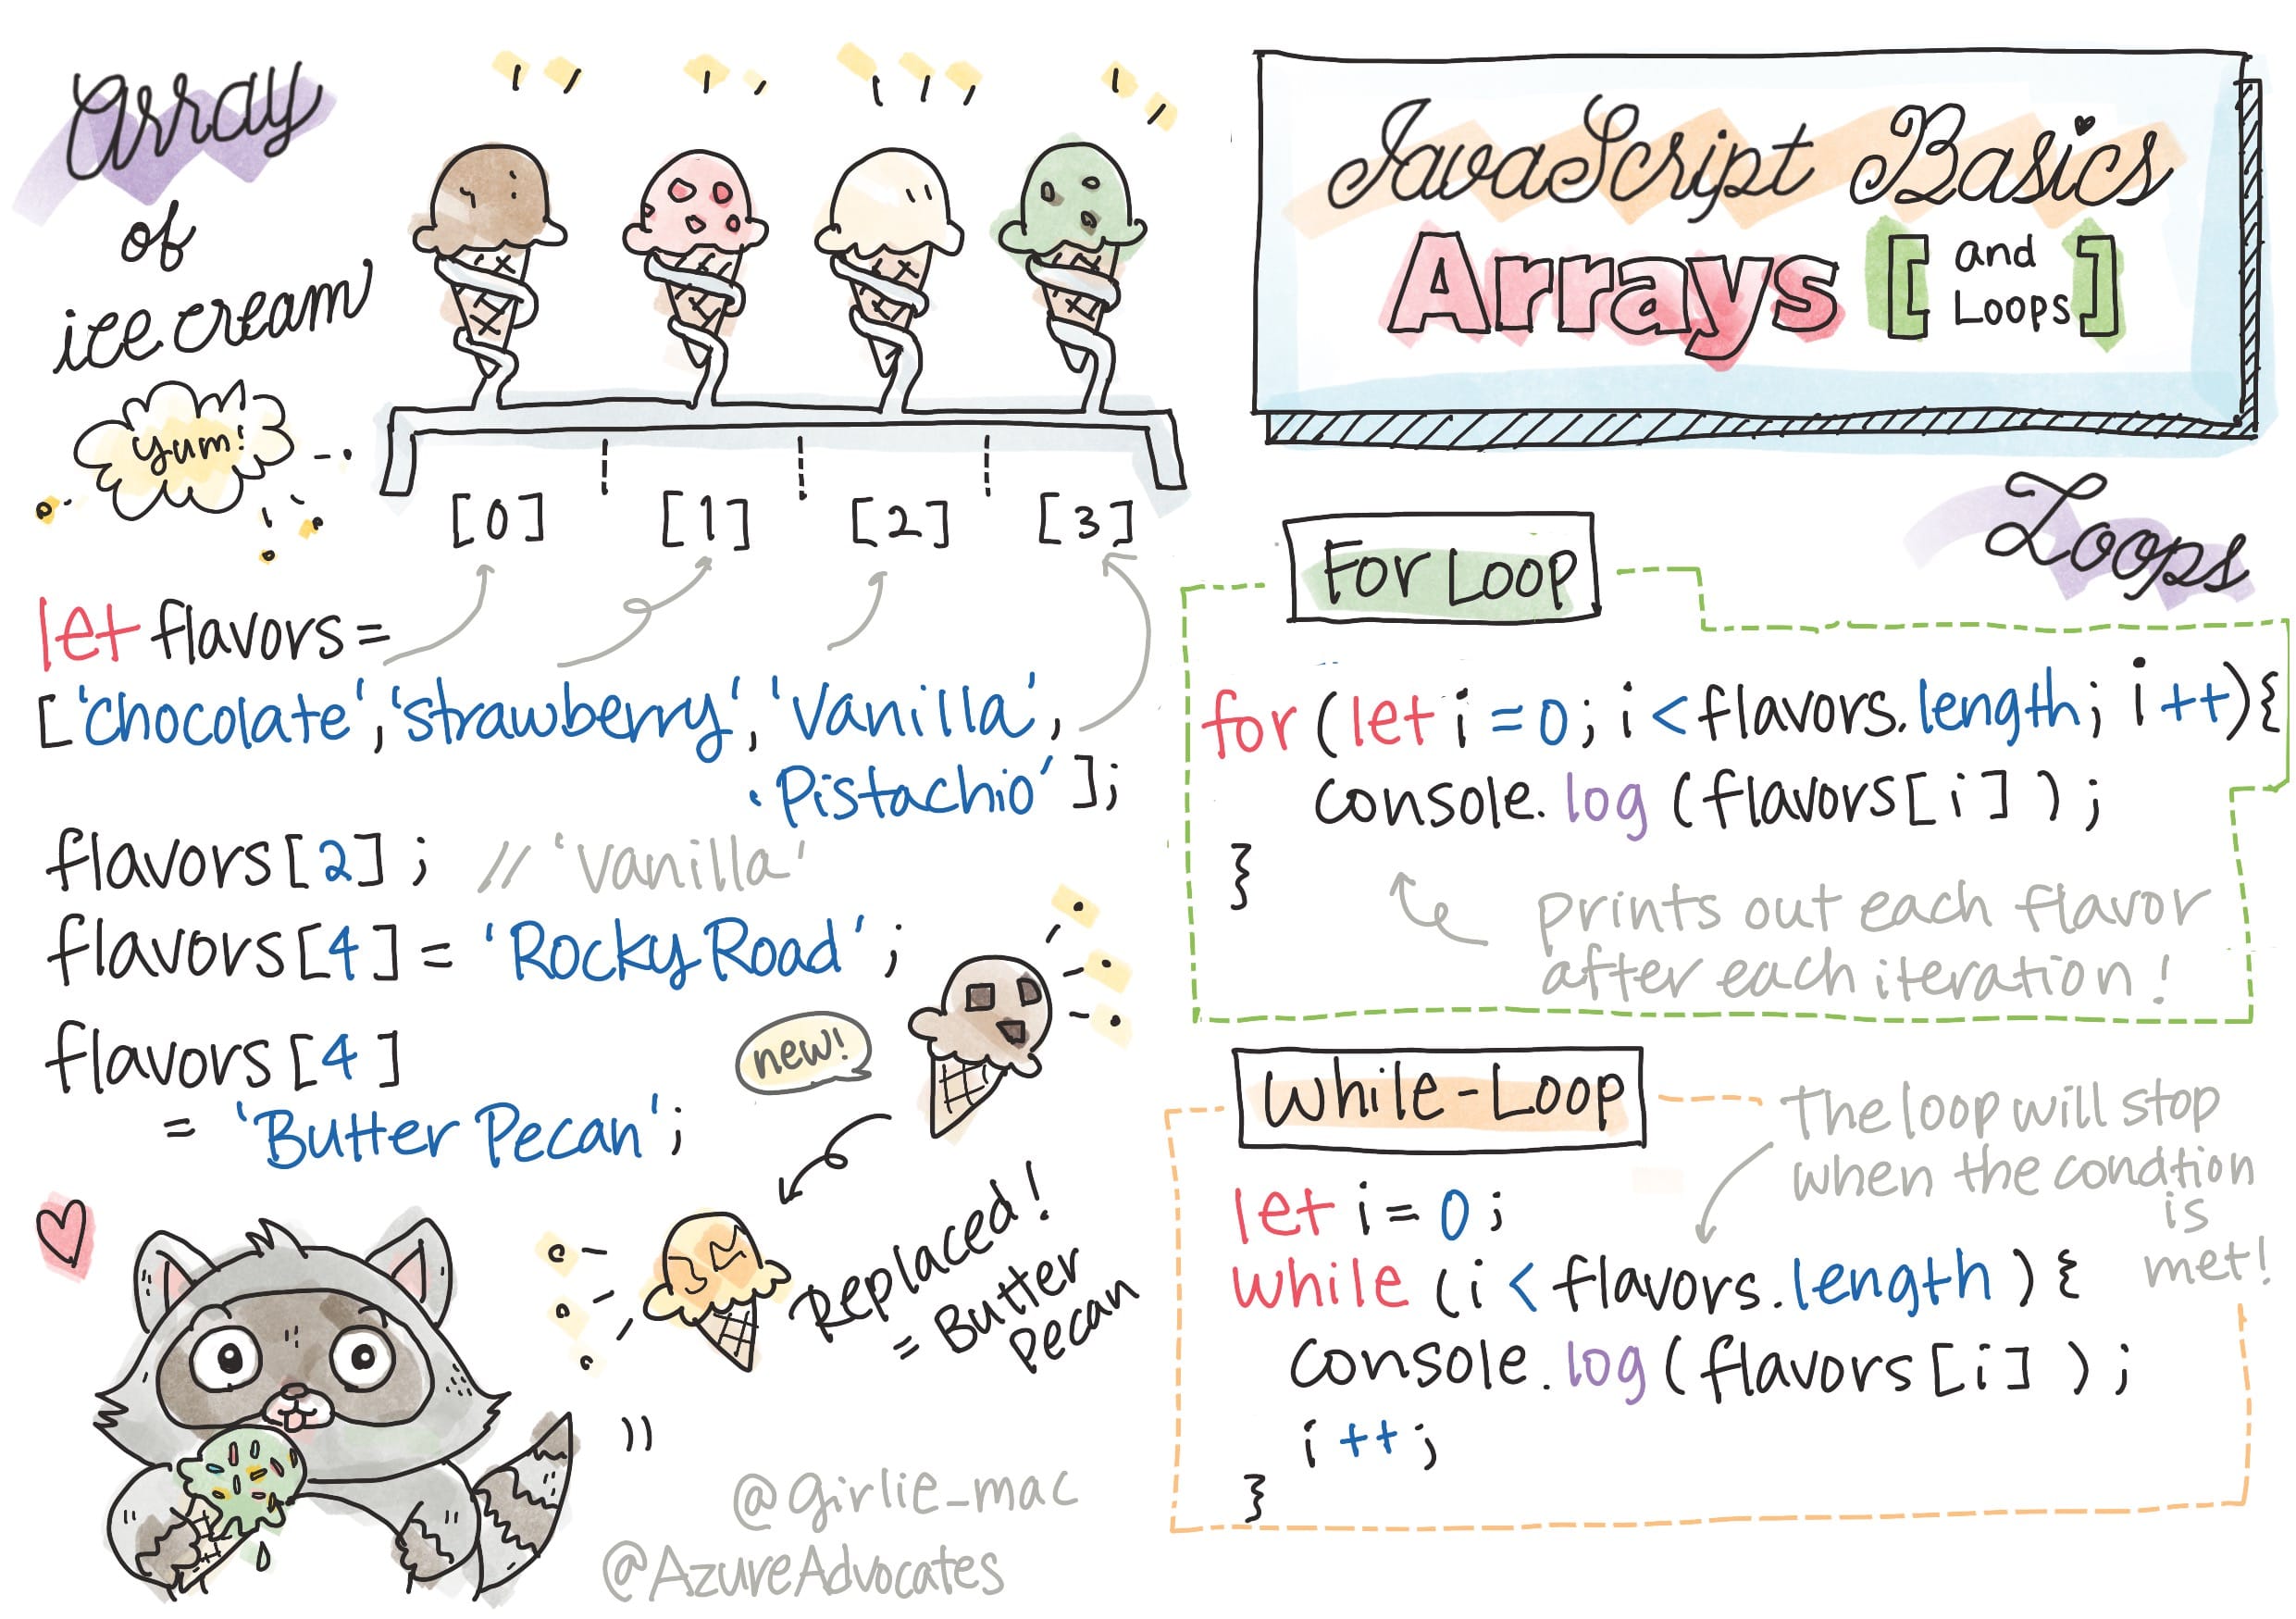 Array
of
ice cream
yum!
[0] [1] [2] [3]
let flavors =
['chocolate', 'strawberry', 'Vanilla',
'Pistachio'];
flavors[2]; // 'Vanilla'
flavors[4] = 'Rocky Road';
flavors[4]
= 'Butter Pecan';
new!
Replaced!
= Butter
Pecan
@girlie_mac
@AzureAdvocates
JavaScript Basics
Arrays [and
Loops]
Loops
For Loop
for (let i = 0; i < flavors.length; i++){
console.log (flavors[i]);
}
prints out each flavor
after each iteration!
While-Loop
The loop will stop
when the condtion
is
met!
let i = 0;
while (i < flavors.length) {
console.log (flavors[i]);
i++;
}